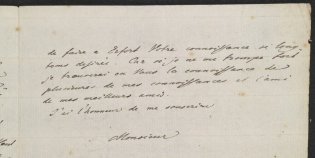 de faire a Erfort Votre connoissance si long
tems desirée. Car si je ne me trompe fort
je trouverai en Vous la connoissance de
plusieures de mes connoissances et l'ami
de mes meilleurs amis.
J'ai l'honneur de me souscrire
Monsieur